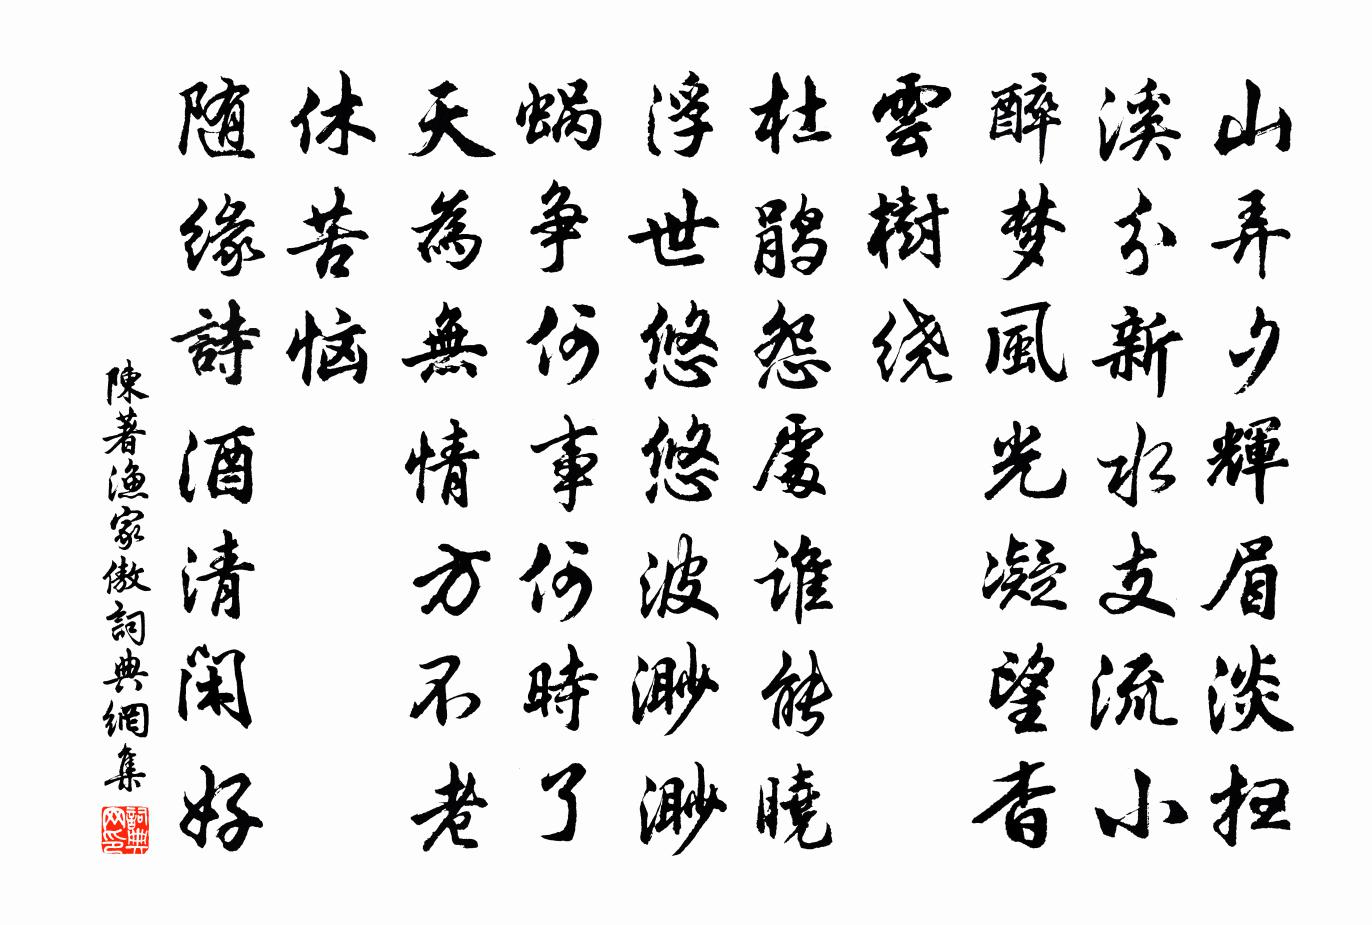 山弄夕輝眉淡扫
溪分新水支流小
醉梦風光凝望杳
雲樹绕
杜鹃怨處谁能曉
浮世悠悠波渺渺
蜗争何事何時了
天為無情方不老
休苦恼
随缘詩酒清闲好
陳著渔家傲詞典網集
詞典网印